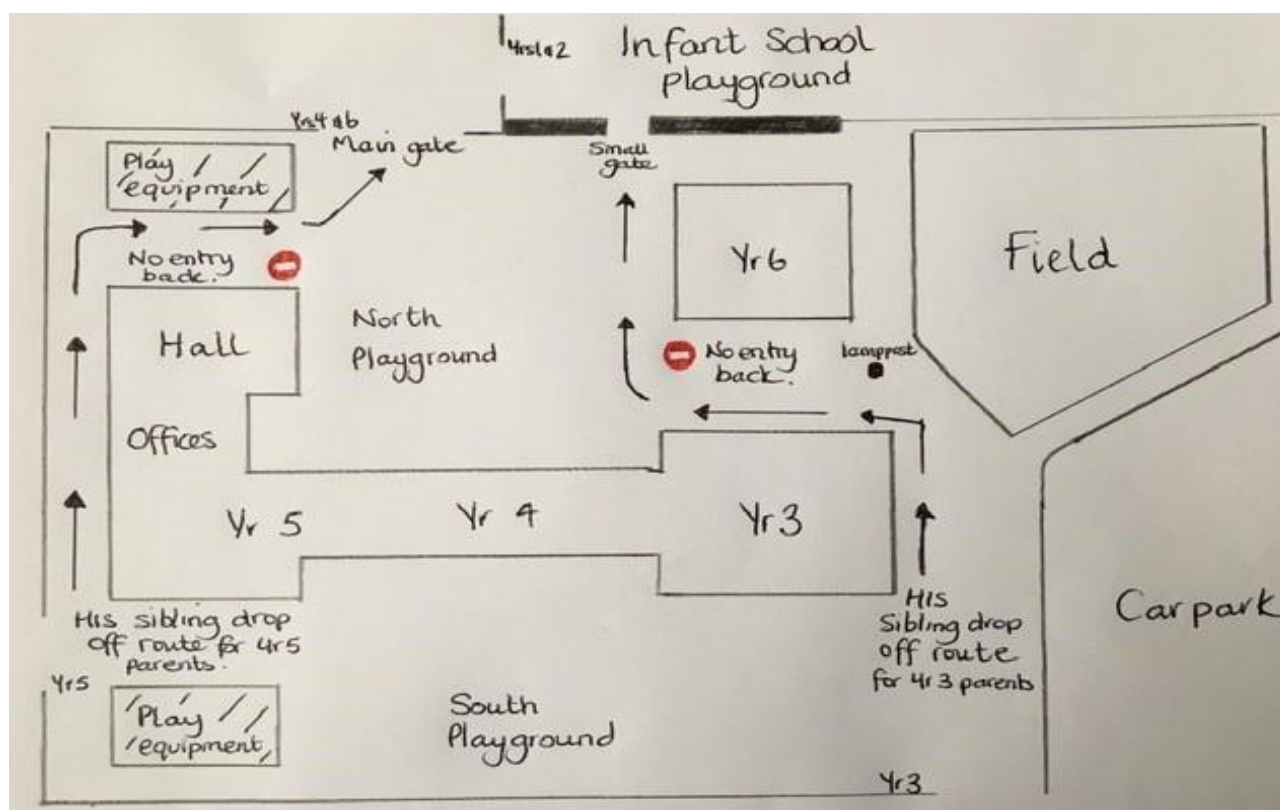 Yrs1&2
Infant School
playground
Yrs4&6
Main gate
Small
gate
Play
equipment
No entry
back.
Hall
Offices
North
Playground
Yr6
No entry
back.
lamppost
Field
Yr 5
Yr 4
Yr3
HIS sibling drop
off route for Yr5
parents.
HIS
Sibling drop
off route
for Yr3 parents
Car park
Yr5
Play
equipment
South
Playground
Yr3